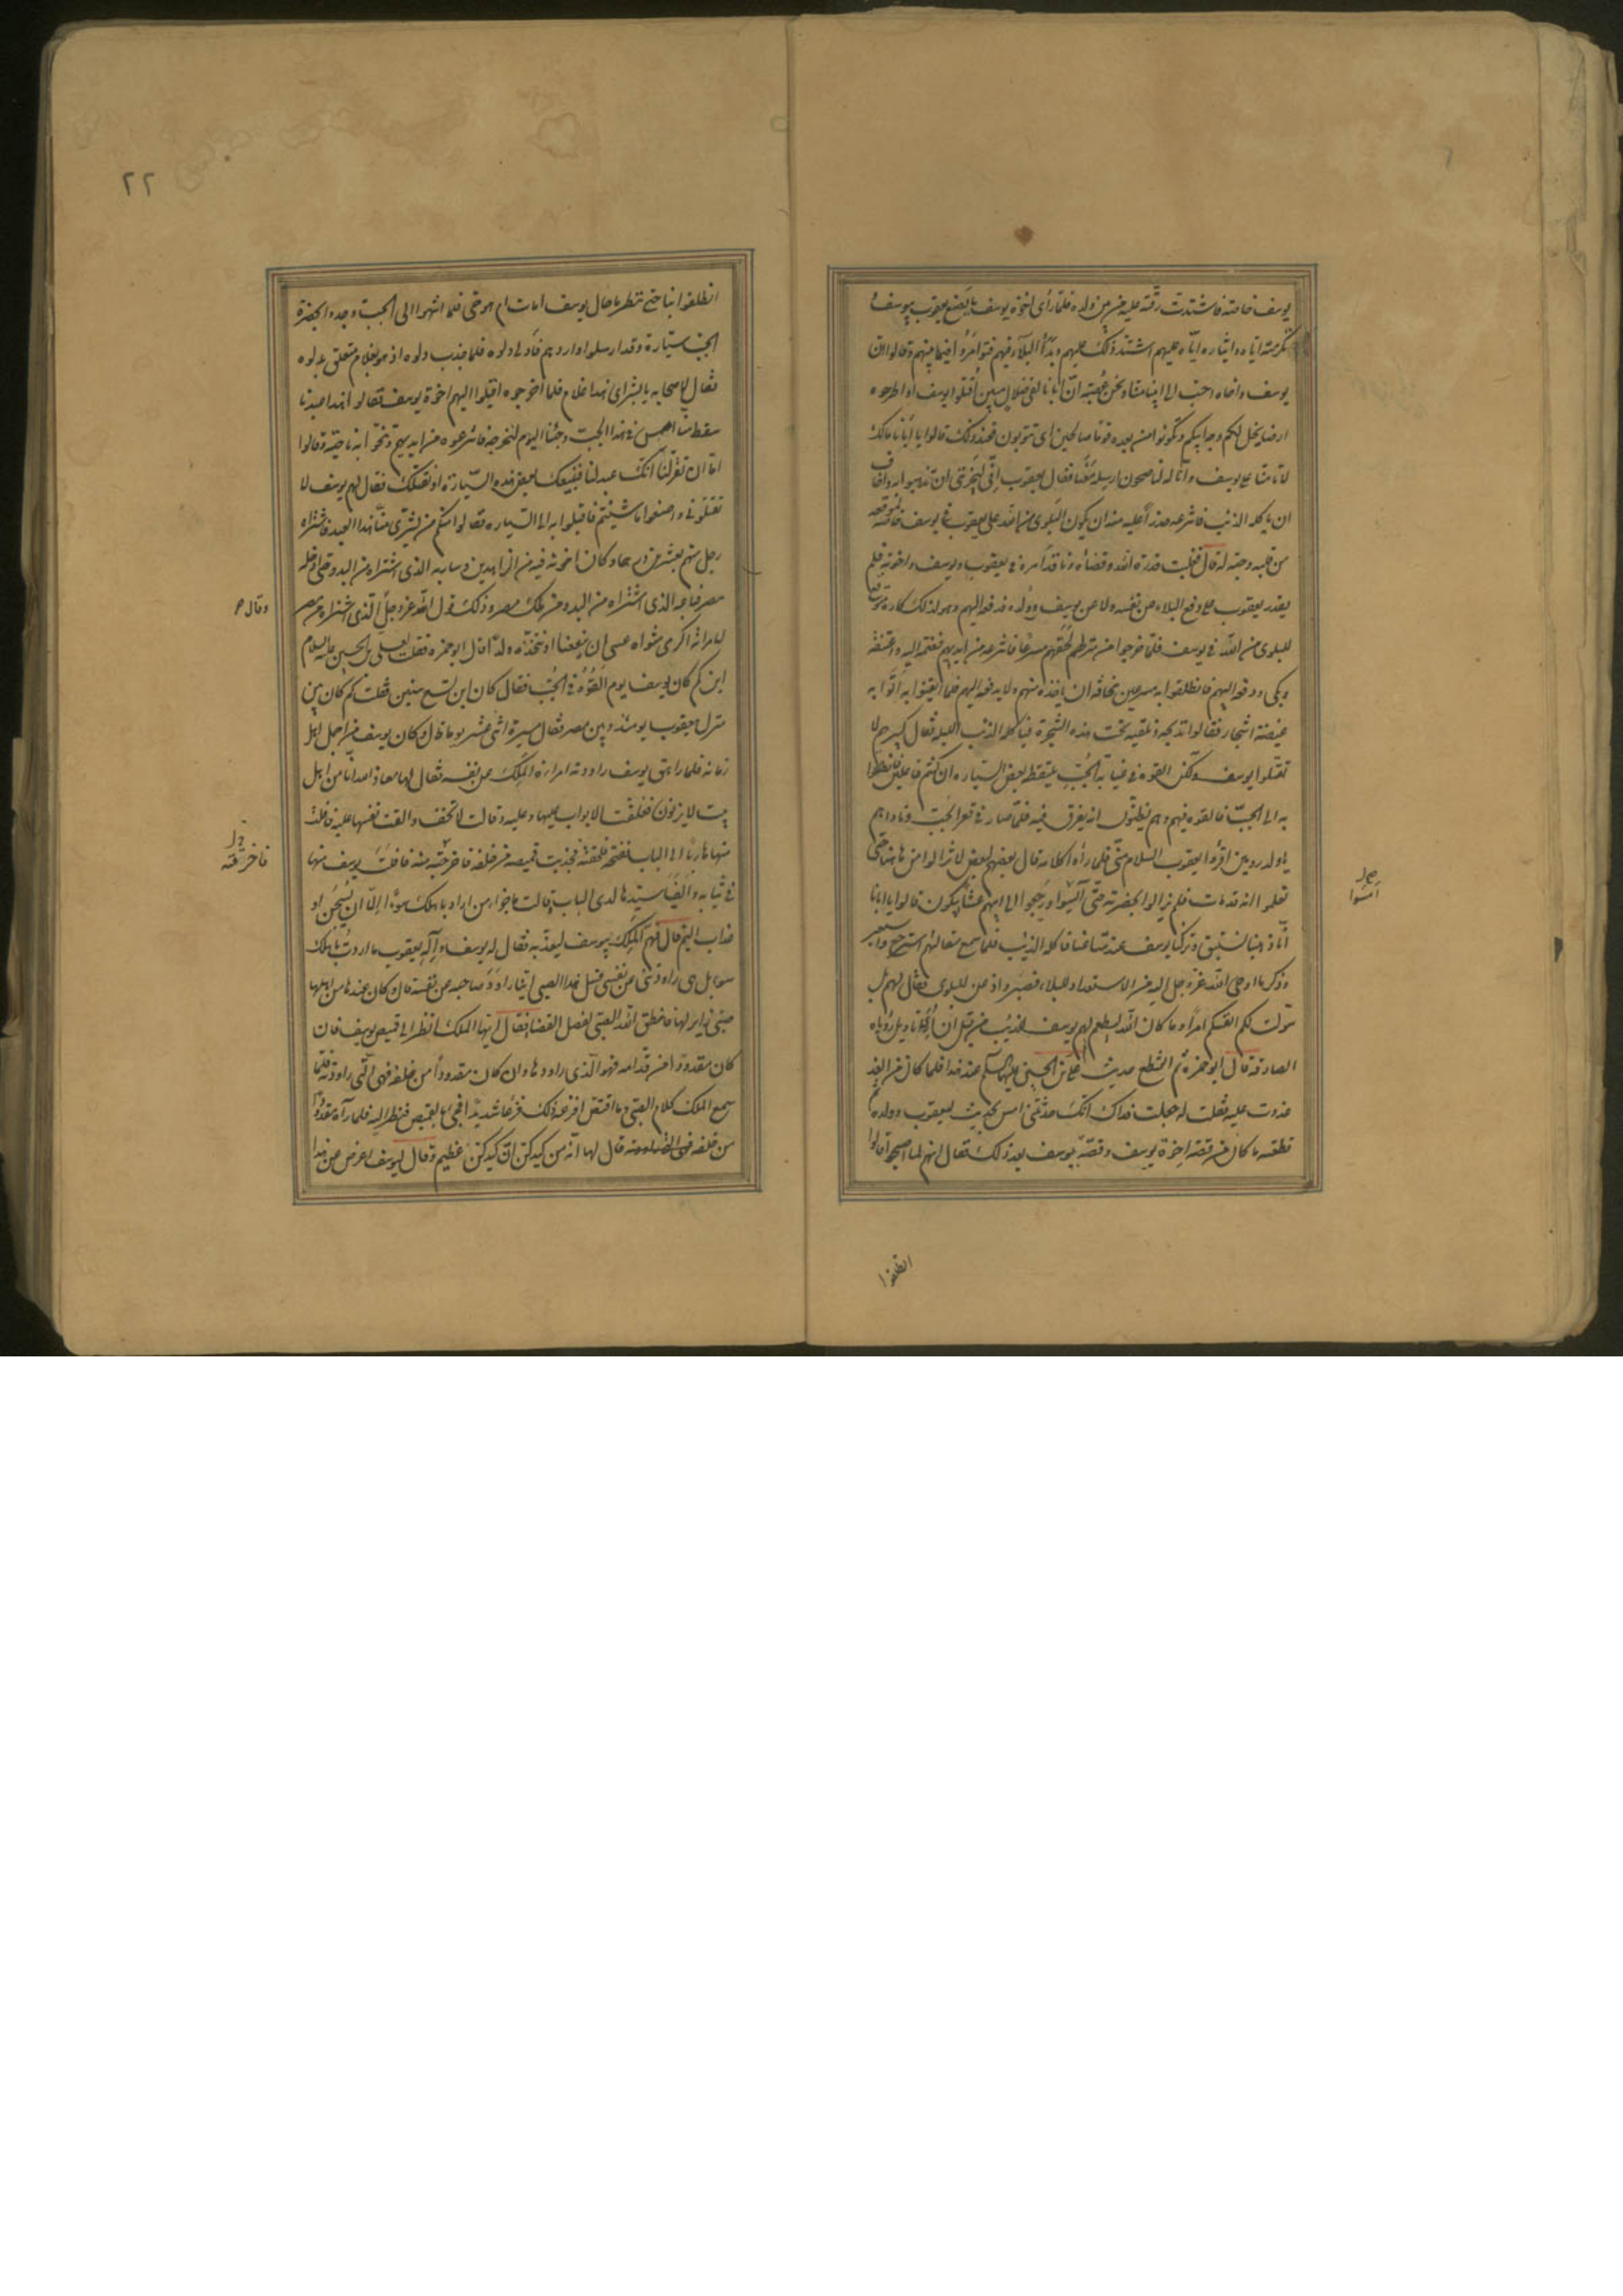 يوسف خاصته فاشتدت رقته عليه من بين ولده فلما رأى اخوة يوسف ما يصنع يعقوب بيوسف
تكرمته اياه وايثاره اياه عليهم اشتد ذلك عليهم وبدأ البلاء فيهم فتوامروا فيما بينهم وقالوا ان
يوسف واخاه احب الى ابينا منا ونحن عصبة ان ابانا لفى ضلال مبين اقتلوا يوسف او اطرحوه
ارضا يخل لكم وجه ابيكم وتكونوا من بعده قوما صالحين اى تتوبون فعند ذلك قالوا يا ابانا مالك
لا تأمنا على يوسف وانا له لناصحون ارسله معنا فقال يعقوب انى ليحزننى ان تذهبوا به واخاف
ان ياكله الذئب فانتزعه حذرا عليه منه ان يكون البلوى من الله على يعقوب فى يوسف خاصة لموقعه
من قلبه وحبه له قال فغلبت قدرة الله وقضاؤه ونافذ امره فى يعقوب ويوسف واخوته فلم
يقدر يعقوب على دفع البلاء عن نفسه ولا عن يوسف وولده فدفعه اليهم وهو لذلك كاره متوقعا
للبلوى من الله فى يوسف فلما خرجوا من منزلهم لحقهم مسرعا فانتزعه من ايديهم فضمه اليه واعتنقه
وبكى ودفعه اليهم فانطلقوا به مسرعين مخافة ان ياخذه منهم ولا يدفعه اليهم فلما ايقنوا به اتوا به
غيضة اشجار فقالوا نذبحه ونلقيه تحت هذه الشجرة فياكله الذئب الليلة فقال كبيرهم لا
تقتلوا يوسف ولكن القوه فى غيابة الجب يلتقطه بعض السيارة ان كنتم فاعلين فانطلقوا
به الى الجب فالقوه فيه وهم يظنون انه يغرق فيه فلما صار فى قعر الجب ناداهم
يا ولد رومين اقرؤا يعقوب السلام منى فلما رأوا كلامه قال بعضهم لبعض لا تزالوا من هاهنا حتى
تعلموا انه قد مات فلم يزالوا بحضرته حتى آيسوا ورجعوا الى ابيهم عشاء يبكون قالوا يا ابانا
انا ذهبنا نستبق وتركنا يوسف عند متاعنا فاكله الذئب فلما سمع مقالتهم استرجع واستعبر
وذكر ما اوحى الله عز وجل اليه من الاستعداد للبلاء فصبر واذعن للبلوى فقال لهم بل
سولت لكم انفسكم امرا وما كان الله ليطعم لحم يوسف الذئب من قبل ان ارى تاويل رؤياه
الصادقة قال ابو حمزة ثم انقطع حديث على بن الحسين عليهما السلم عند هذا فلما كان من الغد
غدوت عليه فقلت له جعلت فداك انك حدثتنى امس بحديث ليعقوب وولده ثم
قطعته ما كان من قصة اخوة يوسف وقصة يوسف بعد ذلك فقال انهم لما اصبحوا قالوا
امسوا
انطلقوا
٢٢
انطلقوا بنا حتى ننظر ما حال يوسف امات ام هو حى فلما انتهوا الى الجب وجدوا بحضرة
الجب سيارة وقد ارسلوا واردهم فادلى دلوه فلما جذب دلوه اذ هو بغلام متعلق بدلوه
فقال لاصحابه يا بشراى هذا غلام فلما اخرجوه اقبلوا اليهم اخوة يوسف فقالوا هذا عبدنا
سقط منا امس فى هذا الجب وجئنا اليوم لنخرجه فانتزعوه من ايديهم وتنحوا به ناحية وقالوا
اما ان تقر لنا انك عبد لنا فنبيعك بعض هذه السيارة او نقتلك فقال لهم يوسف لا
تقتلونى واصنعوا ما شئتم فاقبلوا به الى السيارة فقالوا منكم من يشترى منا هذا العبد فاشتراه
رجل منهم بعشرين درهما وكان اخوته فيه من الزاهدين وسار به الذى اشتراه من البدو حتى ادخله
مصر فباعه الذى اشتراه من البدو من ملك مصر وذلك قول الله عز وجل الذى اشتراه من مصر
لامراته اكرمى مثواه عسى ان ينفعنا او نتخذه ولدا قال ابو حمزة فقلت لعلى بن الحسين عليه السلام
ابن كم كان يوسف يوم القوه فى الجب فقال كان ابن تسع سنين فقلت كم كان بين
منزل يعقوب يومئذ وبين مصر فقال مسيرة اثنى عشر يوما قال وكان يوسف من اجمل اهل
زمانه فلما راهق يوسف راودته امراة الملك عن نفسه فقال لها معاذ الله انا من اهل
بيت لا يزنون فغلقت الابواب عليها وعليه وقالت لا تخف والقت نفسها عليه فافلت
منها هاربا الى الباب ففتحه فلحقته فجذبت قميصه من خلفه فاخرجته منه فافلت يوسف منها
فى ثيابه والفيا سيدها لدى الباب قالت ما جزاء من اراد باهلك سوءا الا ان يسجن او
عذاب اليم قال فهم الملك بيوسف ليعذبه فقال له يوسف واله يعقوب ما اردت باهلك
سوءا بل هى راودتنى عن نفسى فسل هذا الصبى اينا راود صاحبه عن نفسه قال وكان عندها من اهلها
صبى زاير لها فانطق الله الصبى لفصل القضا فقال ايها الملك انظر الى قميص يوسف فان
كان مقدودا من قدامه فهو الذى راودها وان كان مقدودا من خلفه فهى التى راودته فلما
سمع الملك كلام الصبى وما اقتص افزعه ذلك فزعا شديدا فجئ بالقميص فنظر اليه فلما رآه مقدودا
من خلفه قال لها انه من كيدكن ان كيدكن عظيم وقال ليوسف اعرض عن هذا
وقال
فاخرجته